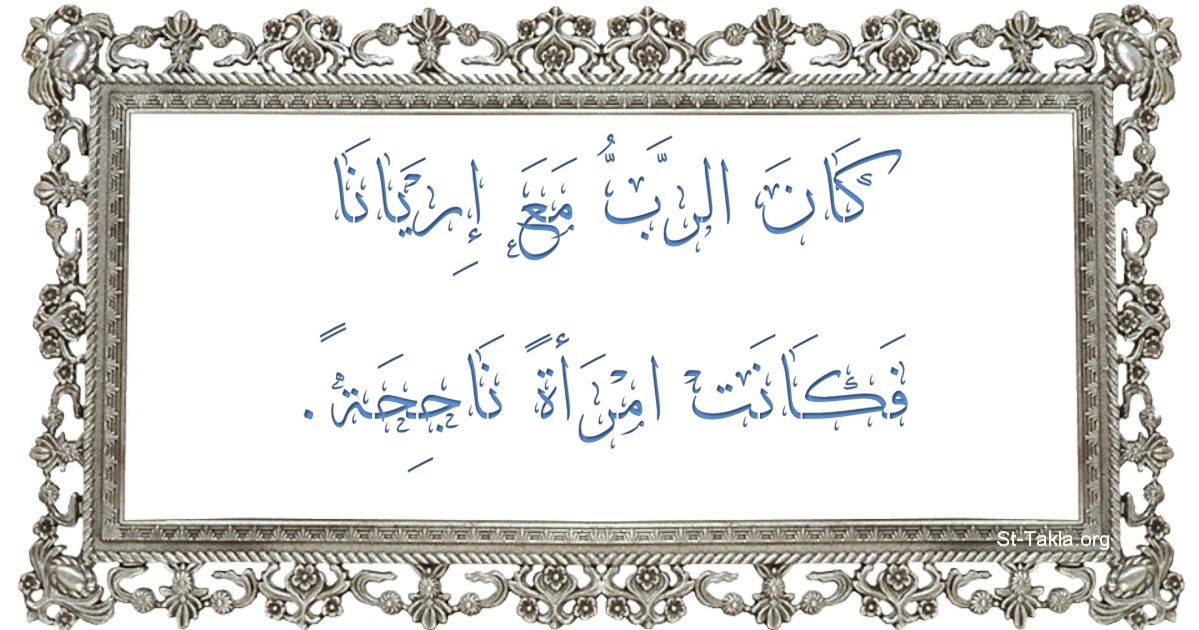 كَانَ الرَّبُّ مَعَ إِريَانَا
فَكَانَت امْرَأةً نَاجِحَةً.
St-Takla.org